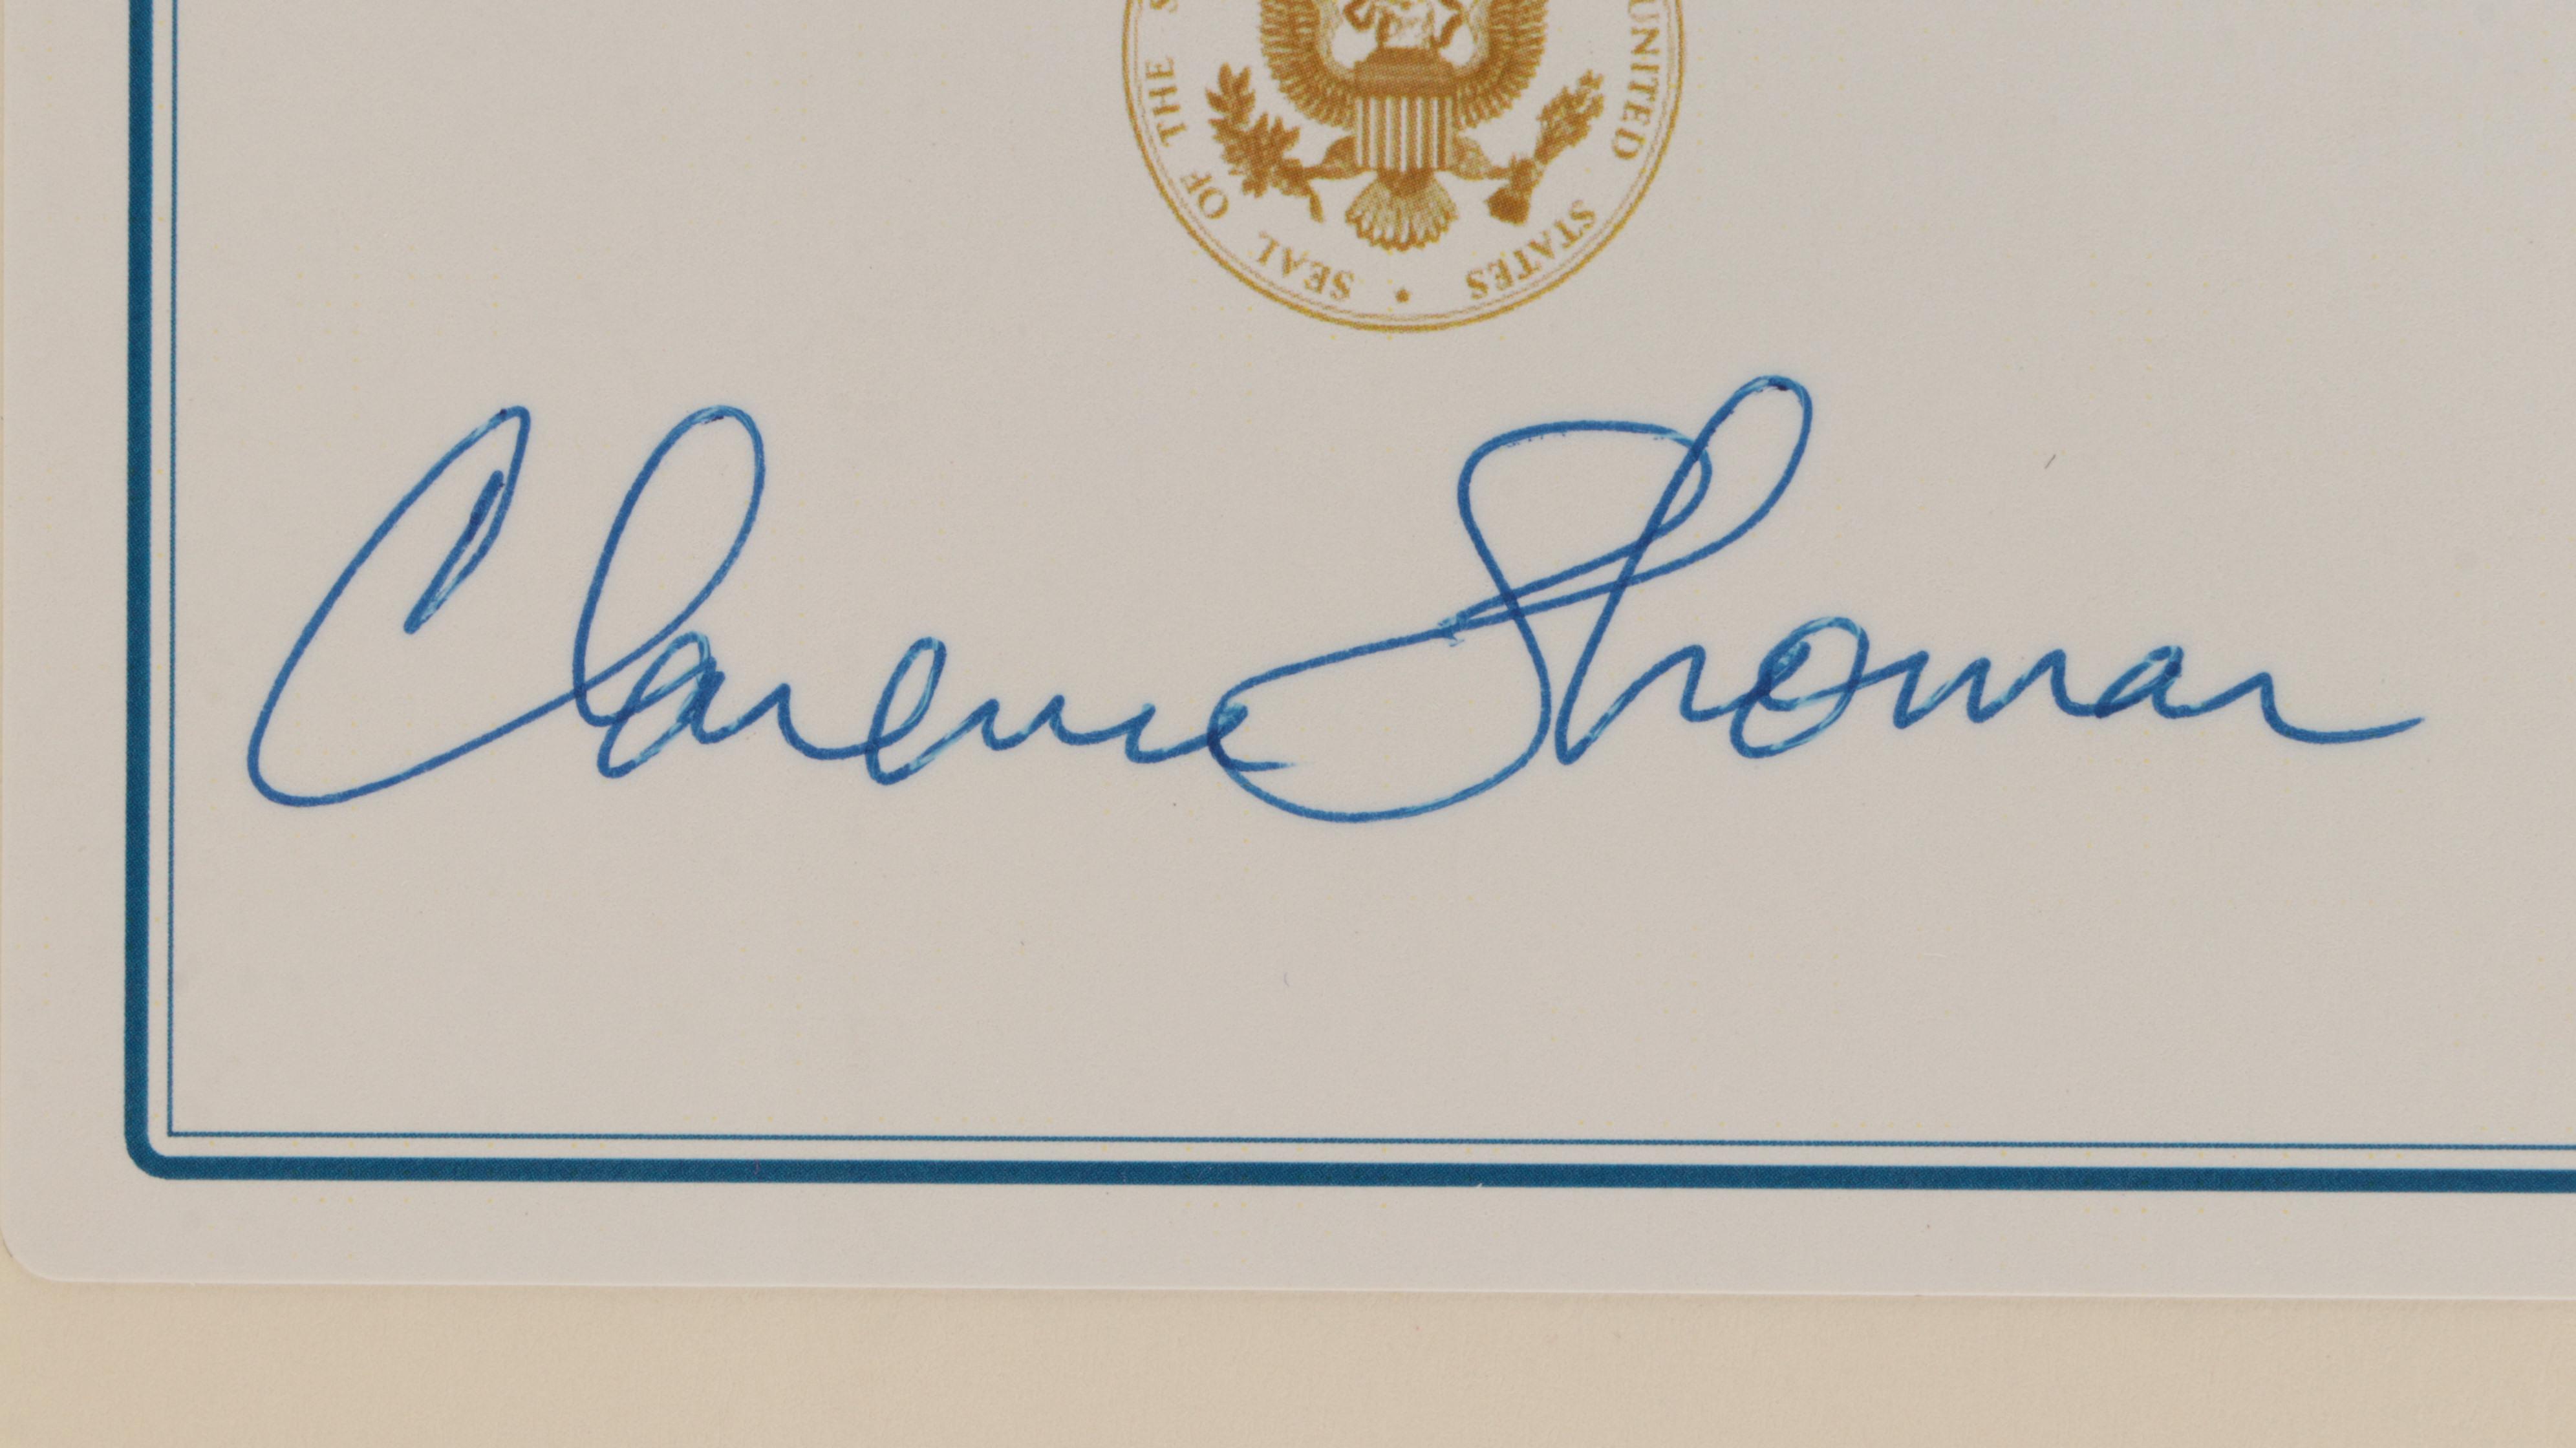 SEAL OF THE UNITED STATES
Clarence Thomas